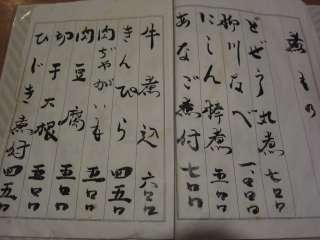 煮もの
どぜう丸煮 七〇〇
柳川なべ 一、〇〇〇
にしん酢煮 五〇〇
あなご煮付 七〇〇
牛煮込 六〇〇
きんぴら 四五〇
肉じゃがいも 五〇〇
肉豆腐 五〇〇
切干大根 四五〇
ひじき煮付 四五〇